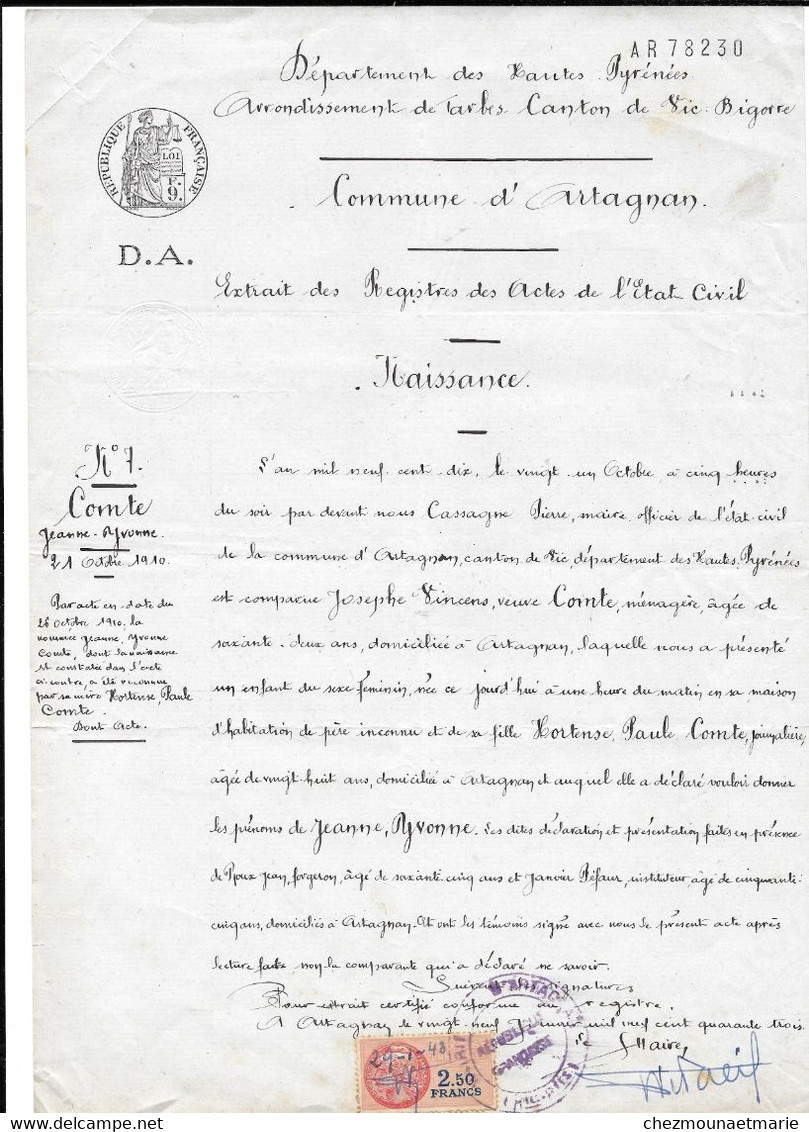 AR 78230
Département des Hautes-Pyrénées
Arrondissement de Tarbes Canton de Vic-Bigorre
RÉPUBLIQUE FRANÇAISE
LOI
F.
9.
Commune d'Artagnan.
D.A.
Extrait des Registres des Actes de l'Etat-Civil
Naissance.
N° 7.
Comte
Jeanne-Yvonne.
21 Octobre 1910.
Par acte en date du
26 Octobre 1910, la
nommée Jeanne, Yvonne
Comte, dont la naissance
est constatée dans l'acte
ci-contre a été reconnue
par sa mère Hortense, Paule
Comte.
Dont Acte.
L'an mil neuf cent dix, le vingt un Octobre à cinq heures
du soir par devant nous Cassagne Pierre, maire, officier de l'état-civil
de la commune d'Artagnan, canton de Vic, département des Hautes-Pyrénées
est comparue Josephe Vincens, veuve Comte, ménagère, âgée de
soixante-deux ans, domiciliée à Artagnan, laquelle nous a présenté
un enfant du sexe féminin, née ce jourd'hui à une heure du matin en sa maison
d'habitation de père inconnu et de sa fille Hortense, Paule Comte, journalière,
âgée de vingt-huit ans, domiciliée à Artagnan et auquel elle a déclaré vouloir donner
les prénoms de Jeanne, Yvonne. Les dites déclaration et présentation faites en présence
de Roux Jean, forgeron, âgé de soixante-cinq ans et Janvier Péfaur, instituteur, âgé de cinquante-
cinq ans, domiciliés à Artagnan. Et ont les témoins signé avec nous le présent acte après
lecture faite non la comparante qui a déclaré ne savoir.
Suivent les signatures
Pour extrait certifié conforme au registre.
A Artagnan le vingt-neuf Janvier mil neuf cent quarante trois.
le Maire,
29-1-43
2.50
FRANCS
MAIRIE D'ARTAGNAN
RÉPUBLIQUE
FRANÇAISE
(Htes-Pyr.)
chezmounaetmarie